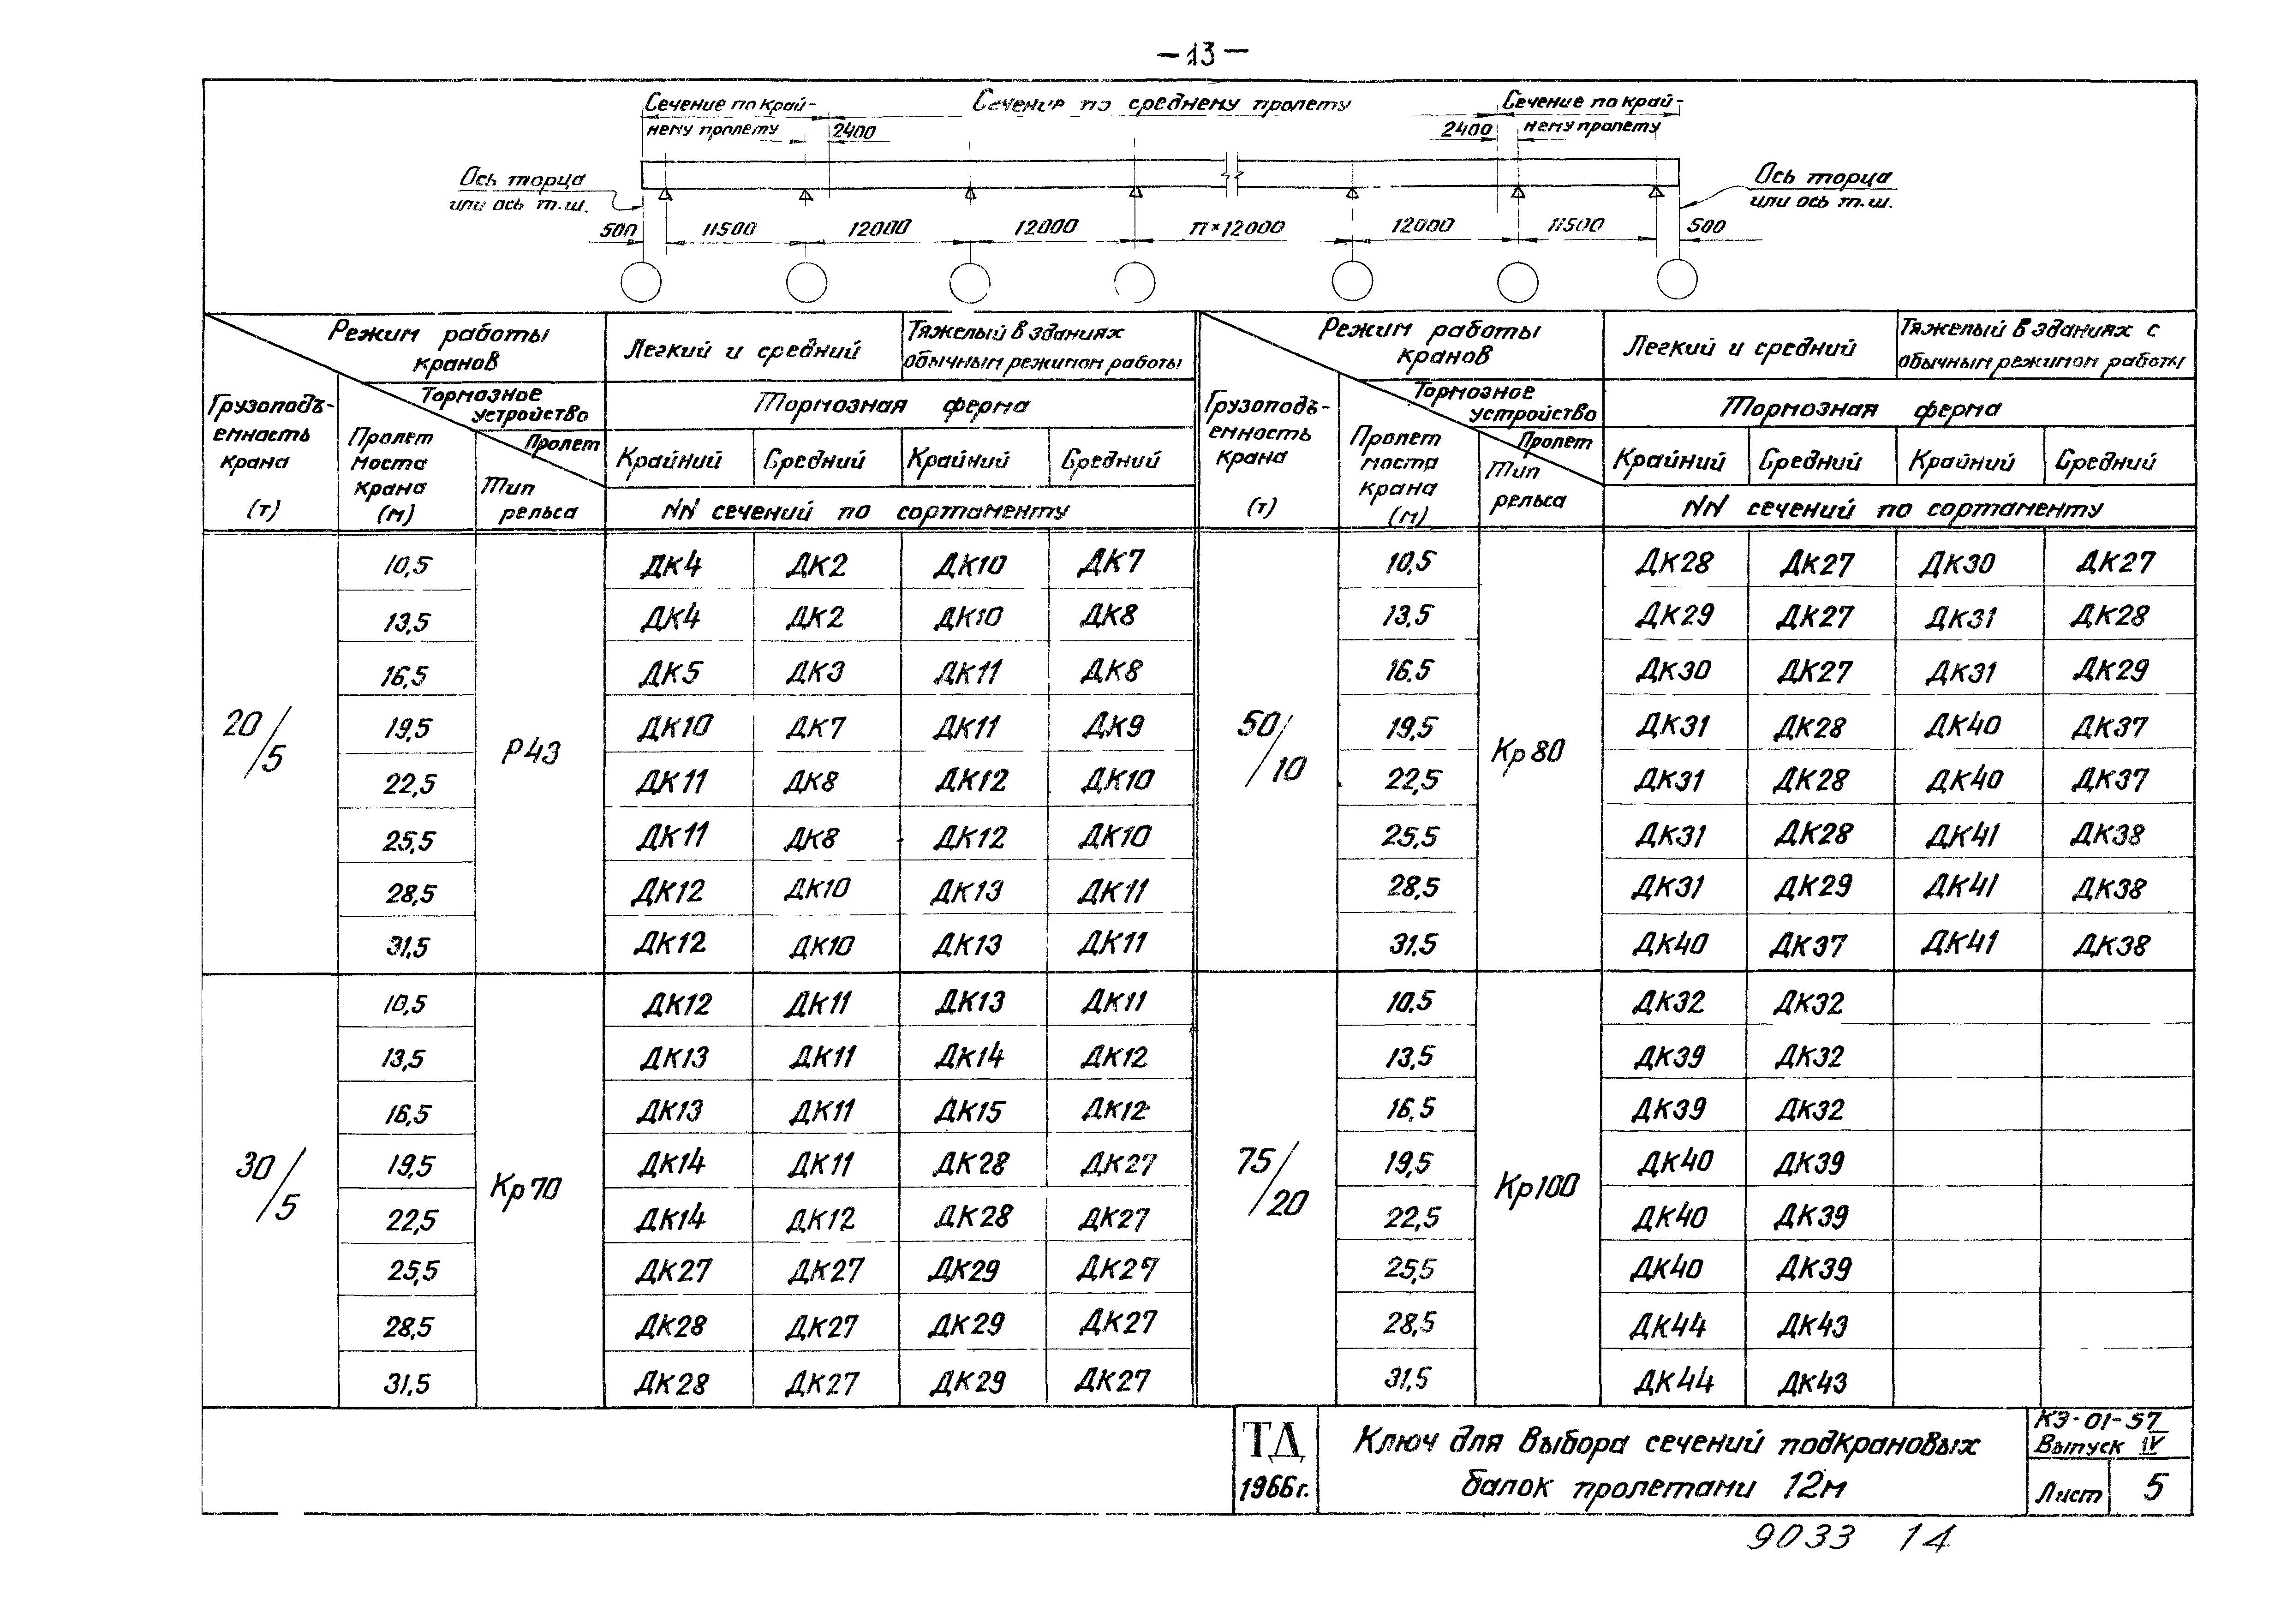 -13-
Сечение по край-
нему пролету
Сечение по среднему пролету
Сечение по край-
нему пролету
2400
2400
Ось торца
или ось т.ш.
Ось торца
или ось т.ш.
500 11500 12000 12000 п×12000 12000 11500 500
Режим работы
кранов
Легкий и средний
Тяжелый в зданиях
обычным режимом работы
Режим работы
кранов
Легкий и средний
Тяжелый в зданиях с
обычным режимом работы
Грузоподъ-
емность
крана
(т)
Пролет
моста
крана
(м)
Тормозное
устройство
Пролет
Тип
рельса
Тормозная ферма
Крайний Средний Крайний Средний
NN сечений по сортаменту
Грузоподъ-
емность
крана
(т)
Пролет
моста
крана
(м)
Тормозное
устройство
Пролет
Тип
рельса
Тормозная ферма
Крайний Средний Крайний Средний
NN сечений по сортаменту
20/5
Р43
10,5 ДК4 ДК2 ДК10 ДК7
13,5 ДК4 ДК2 ДК10 ДК8
16,5 ДК5 ДК3 ДК11 ДК8
19,5 ДК10 ДК7 ДК11 ДК9
22,5 ДК11 ДК8 ДК12 ДК10
25,5 ДК11 ДК8 ДК12 ДК10
28,5 ДК12 ДК10 ДК13 ДК11
31,5 ДК12 ДК10 ДК13 ДК11
30/5
Кр70
10,5 ДК12 ДК11 ДК13 ДК11
13,5 ДК13 ДК11 ДК14 ДК12
16,5 ДК13 ДК11 ДК15 ДК12
19,5 ДК14 ДК11 ДК28 ДК27
22,5 ДК14 ДК12 ДК28 ДК27
25,5 ДК27 ДК27 ДК29 ДК27
28,5 ДК28 ДК27 ДК29 ДК27
31,5 ДК28 ДК27 ДК29 ДК27
50/10
Кр80
10,5 ДК28 ДК27 ДК30 ДК27
13,5 ДК29 ДК27 ДК31 ДК28
16,5 ДК30 ДК27 ДК31 ДК29
19,5 ДК31 ДК28 ДК40 ДК37
22,5 ДК31 ДК28 ДК40 ДК37
25,5 ДК31 ДК28 ДК41 ДК38
28,5 ДК31 ДК29 ДК41 ДК38
31,5 ДК40 ДК37 ДК41 ДК38
75/20
Кр100
10,5 ДК32 ДК32
13,5 ДК39 ДК32
16,5 ДК39 ДК32
19,5 ДК40 ДК39
22,5 ДК40 ДК39
25,5 ДК40 ДК39
28,5 ДК44 ДК43
31,5 ДК44 ДК43
ТД
1966г.
Ключ для выбора сечений подкрановых
балок пролетами 12м
КЭ-01-57
Выпуск IV
Лист 5
9033 14